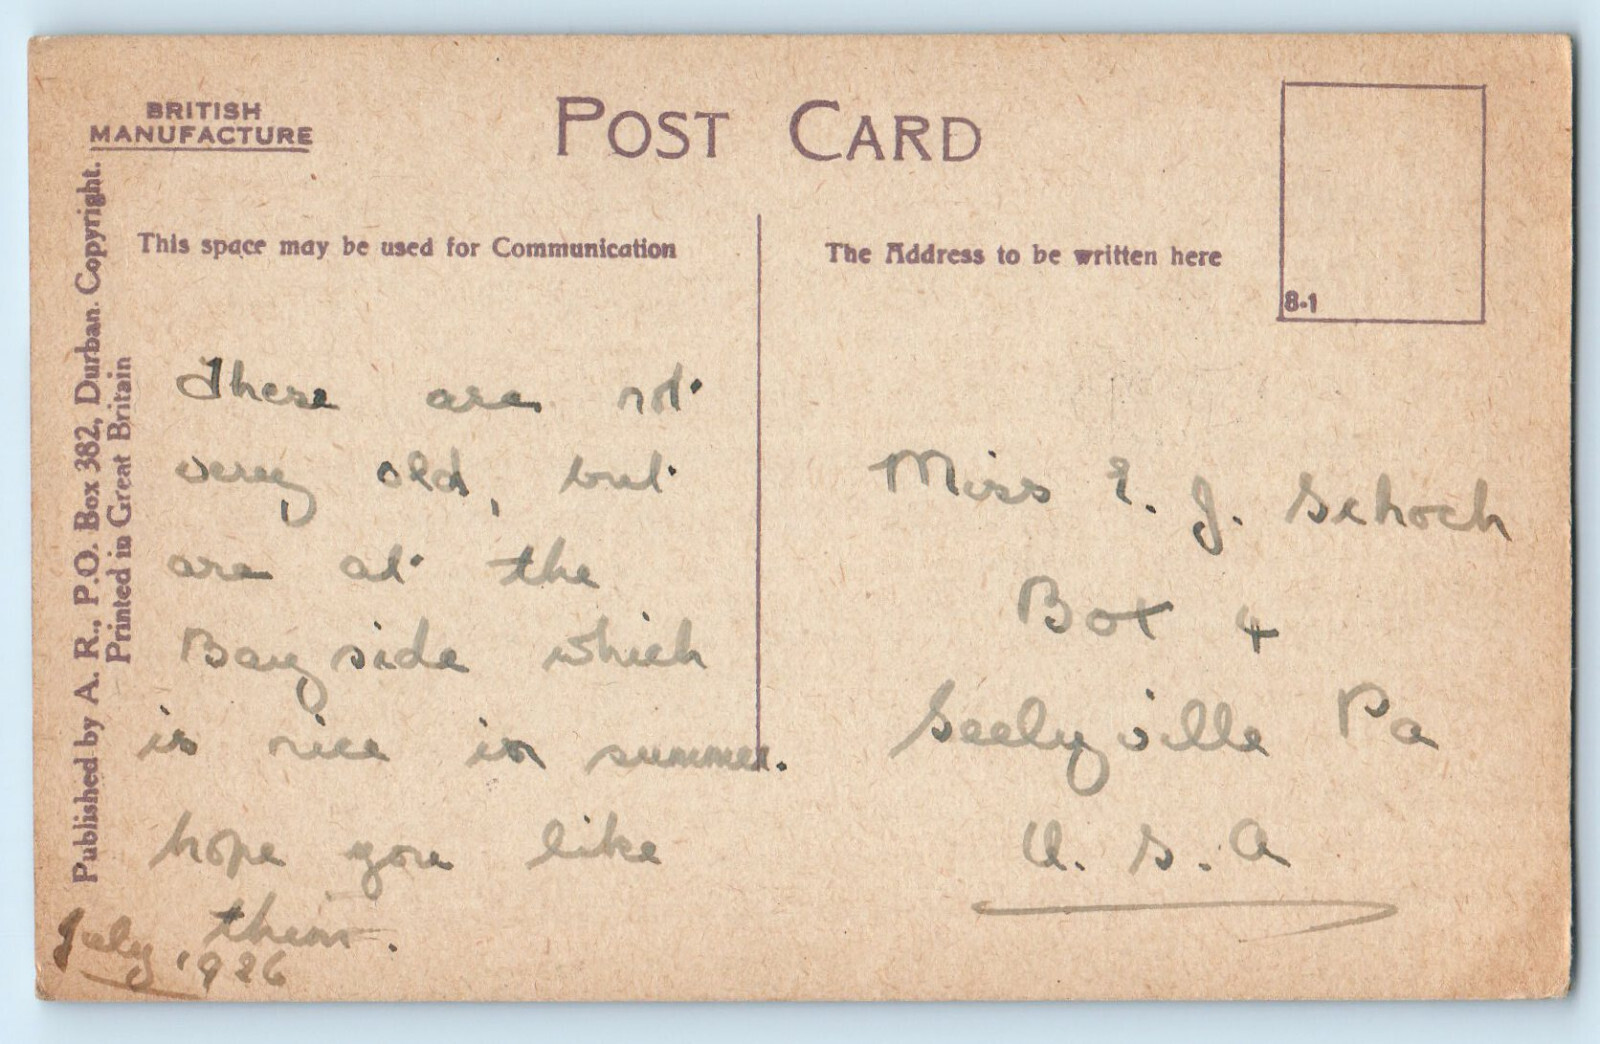 BRITISH
MANUFACTURE
POST CARD
This space may be used for Communication
The Address to be written here
8-1
Published by A. R., P.O. Box 382, Durban. Copyright.
Printed in Great Britain
These are not
very old, but
are at the
Bayside which
is nice in summer.
hope you like
them.
July 1926
Miss E. J. Schoch
Box 4
Seelyville Pa
U. S. A